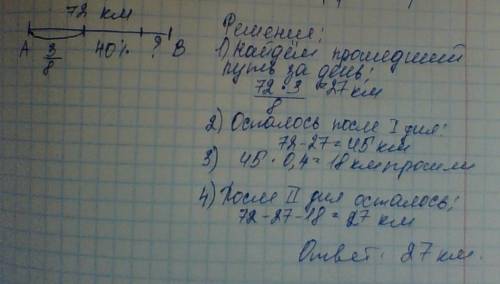 72 км
A 3/8 40% ? B
Решение:
1) Найдём прошедший
путь за день:
72 · 3 / 8 = 27 км
2) Осталось после I дня:
72-27=45 км
3) 45 · 0,4=18 км прошли
4) После II дня осталось:
72-27-18=27 км
Ответ: 27 км.